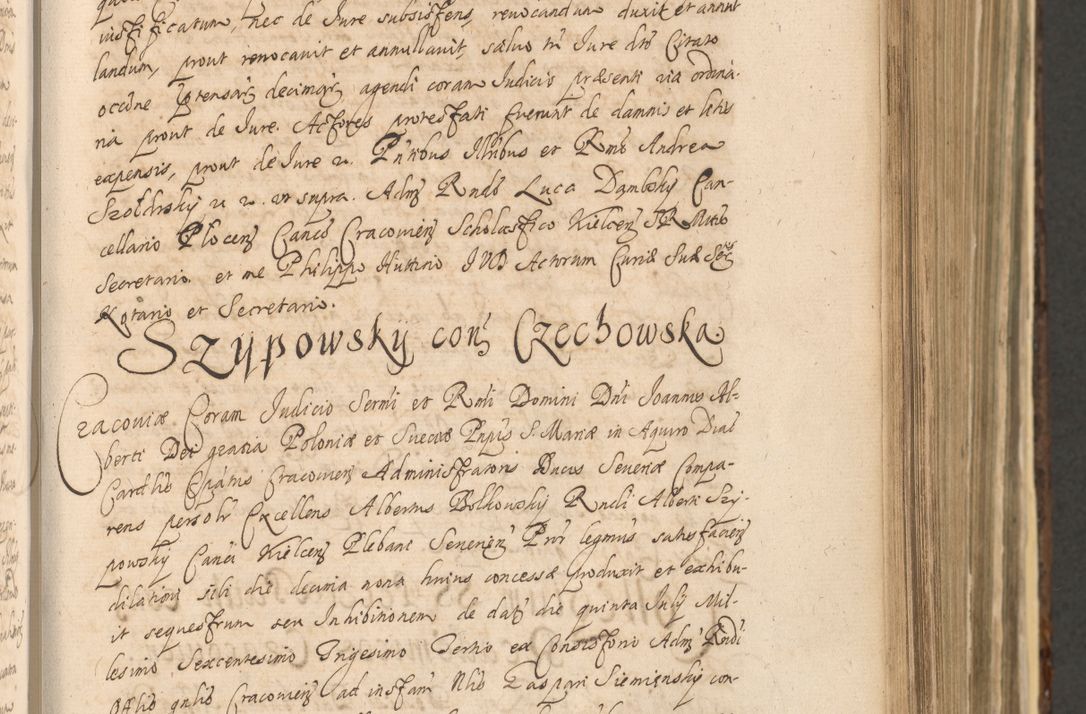 iustificatum, nec de Jure subsistens, revocandum duxit et annul
landum, prout revocavit et annullavit, salvo tn Jure dto Citato
occne prtensarz decimarz agendi coram Judicio præsenti via ordina
ria prout de Jure. Actores protestati fuerunt de damnis et litis
expensis, prout de Jure n. Pntibus Illribus et Rmis Andrea
Szołdrsky n n. ut supra. Admz Rndo Luca Dąmbsky Can-
cellario Plocenz Canco Cracovienz Scholastico Kielcenz SR Mttis
Secretario. et me Philippo Huttino JVD Actorum Curiæ Suæ
Notario et Secretario.
Szypowsky conz Czechowska.
Cracoviæ Coram Judicio Sermi et Rndi Domini Dni Joannis Al-
berti Dei gratia Poloniæ et Sueciæ Pnpis S. Mariæ in Aquiro Diac
Cardlis Epatus Cracovienz Administratoris Ducis Severiæ Compa-
rens persolr Excellens Albertus Bolkowsky Rndi Alberti Szy-
powsky Canci Kielcenz Plebani Severienz Pror legmus satisfacienz
dilationi sibi die decima nona huius concessæ produxit et exhibu-
it sequestrum seu Inhibitionem de datz die quinta July Mil-
lesimo Sexcentesimo Trigesimo Tertio ex Consistorio Admz Rndi
Offlis gnlis Cracovienz ad instam Nlis Caspari Siemiensky con-